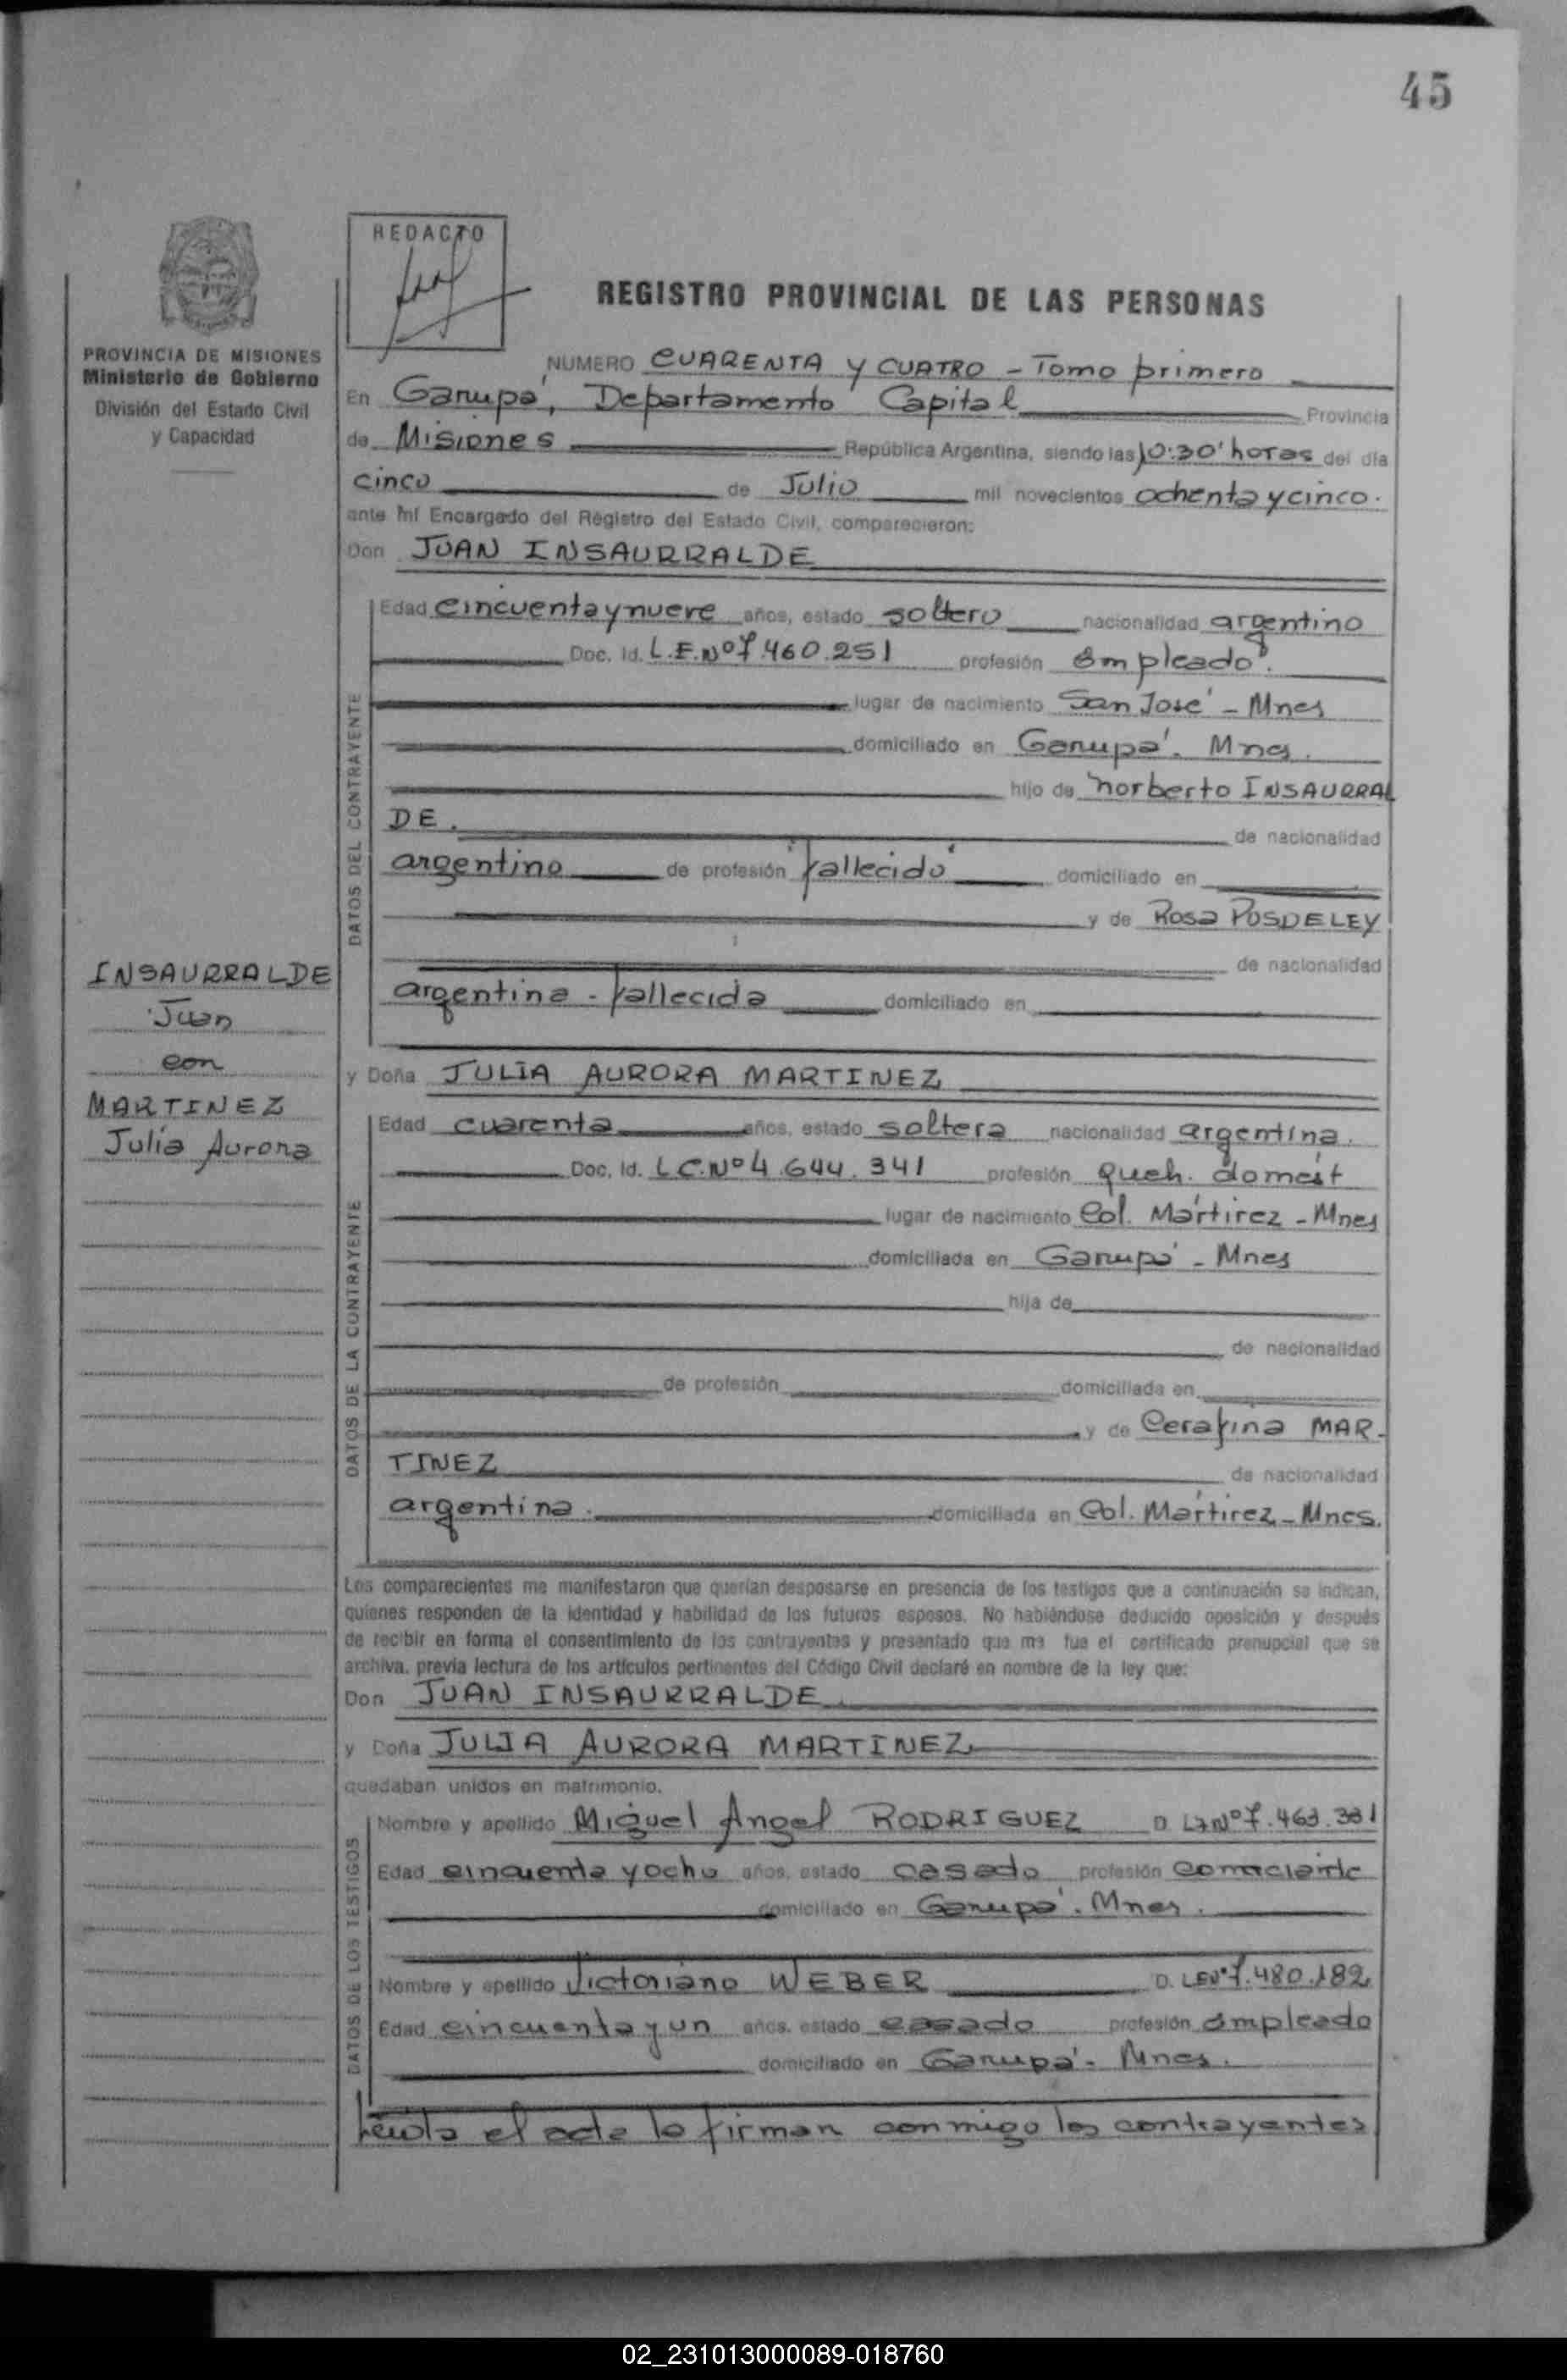 45
REDACTO
REGISTRO PROVINCIAL DE LAS PERSONAS
PROVINCIA DE MISIONES
Ministerio de Gobierno
División del Estado Civil
y Capacidad
NUMERO CUARENTA Y CUATRO - Tomo primero
En Garupá, Departamento Capital Provincia
de Misiones República Argentina, siendo las 10:30' horas del día
cinco de Julio mil novecientos ochenta y cinco.
ante mí Encargado del Registro del Estado Civil, comparecieron:
Don JUAN INSAURRALDE
DATOS DEL CONTRAYENTE
Edad cincuenta y nueve años, estado soltero nacionalidad argentino
Doc. Id. L.E.Nº 7.460.251 profesión empleado.
lugar de nacimiento San José - Mnes
domiciliado en Garupá. Mnes.
hijo de Norberto INSAURRAL
DE. de nacionalidad
argentino de profesión "fallecido" domiciliado en
y de Rosa POSDELEY
de nacionalidad
argentina - fallecida domiciliado en
INSAURRALDE
Juan
con
MARTINEZ
Julia Aurora
y Doña JULIA AURORA MARTINEZ
DATOS DE LA CONTRAYENTE
Edad cuarenta años, estado soltera nacionalidad argentina.
Doc. Id. L.C.Nº 4.644.341 profesión queh. domést
lugar de nacimiento Col. Mártirez - Mnes
domiciliada en Garupá - Mnes
hija de
de nacionalidad
de profesión domiciliada en
y de Cerafina MAR-
TINEZ de nacionalidad
argentina. domiciliada en Col. Mártirez - Mnes.
Los comparecientes me manifestaron que querían desposarse en presencia de los testigos que a continuación se indican,
quienes responden de la identidad y habilidad de los futuros esposos. No habiéndose deducido oposición y después
de recibir en forma el consentimiento de los contrayentes y presentado que me fue el certificado prenupcial que se
archiva, previa lectura de los artículos pertinentes del Código Civil declaré en nombre de la ley que:
Don JUAN INSAURRALDE.
y Doña JULIA AURORA MARTINEZ.
quedaban unidos en matrimonio.
DATOS DE LOS TESTIGOS
Nombre y apellido Miguel Angel RODRIGUEZ D. Nº 7.463.381
Edad cincuenta y ocho años, estado casado profesión comerciante
domiciliado en Garupá. Mnes.
Nombre y apellido Victoriano WEBER D. LENº 7.480.182
Edad cincuenta y un años, estado casado profesión empleado
domiciliado en Garupá - Mnes.
Leída el acta la firman conmigo los contrayentes
02_231013000089-018760